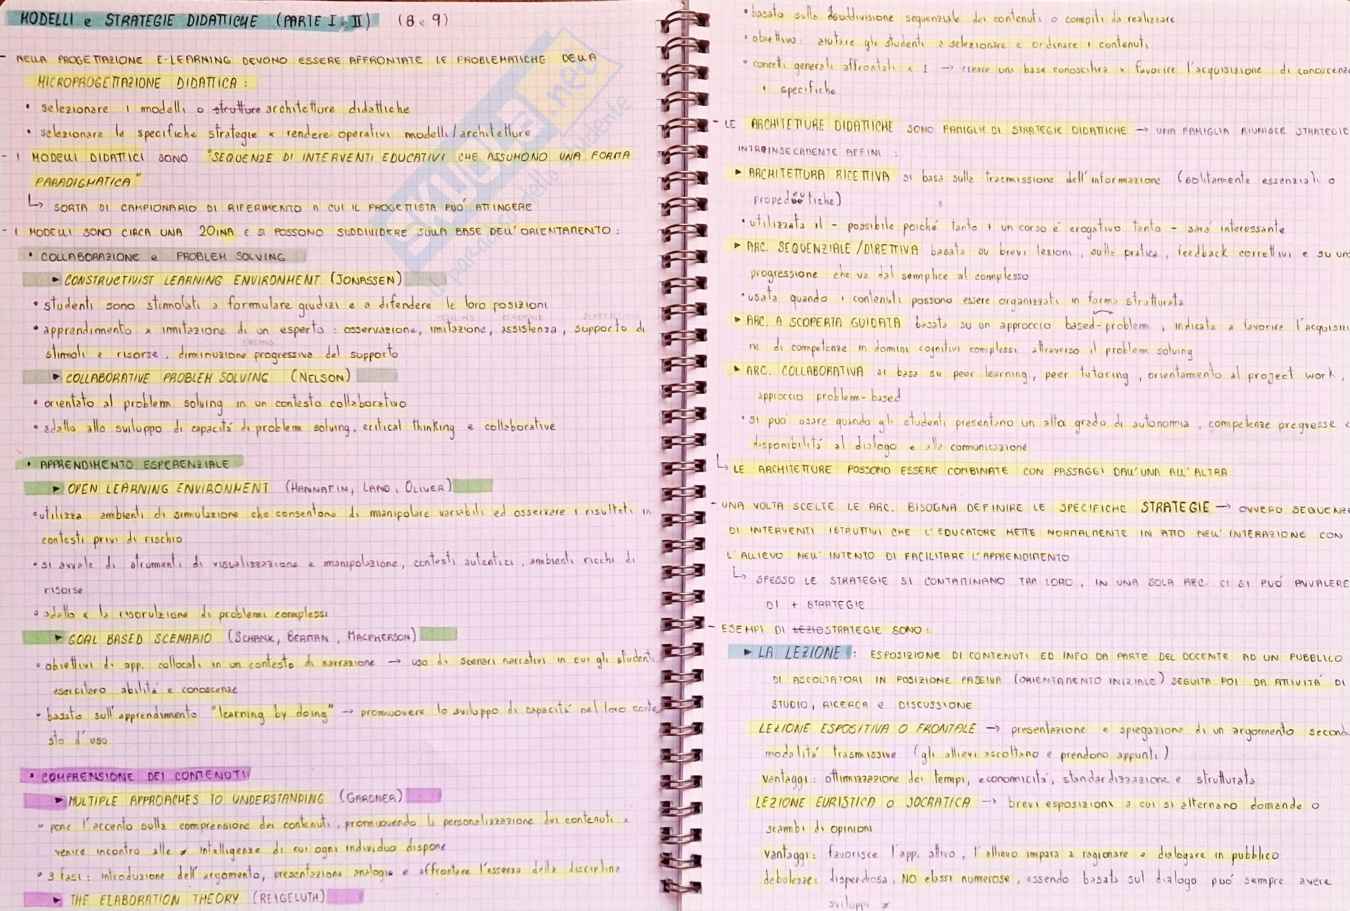 MODELLI e STRATEGIE DIDATTICHE (PARTE I e II) (8 e 9)
- NELLA PROGETTAZIONE E-LEARNING DEVONO ESSERE AFFRONTATE LE PROBLEMATICHE DELLA
MICROPROGETTAZIONE DIDATTICA :
• selezionare i modelli o strutture architetture didattiche
• selezionare le specifiche strategie x rendere operativi modelli/architetture
- I MODELLI DIDATTICI SONO "SEQUENZE DI INTERVENTI EDUCATIVI CHE ASSUMONO UNA FORMA
PARADIGMATICA"
↳ SORTA DI CAMPIONARIO DI RIFERIMENTO A CUI IL PROGETTISTA PUO' ATTINGERE
- I MODELLI SONO CIRCA UNA 20INA E SI POSSONO SUDDIVIDERE SULLA BASE DELL'ORIENTAMENTO :
• COLLABORAZIONE e PROBLEM SOLVING
► CONSTRUCTIVIST LEARNING ENVIRONMENT (JONASSEN)
• studenti sono stimolati a formulare giudizi e a difendere le loro posizioni
• apprendimento x imitazione di un esperto : osservazione, imitazione, assistenza, supporto di
stimoli e risorse, diminuzione progressiva del supporto
► COLLABORATIVE PROBLEM SOLVING (NELSON)
• orientato al problem solving in un contesto collaborativo
• adatto allo sviluppo di capacità di problem solving, critical thinking e collaborative
• APPRENDIMENTO ESPERENZIALE
► OPEN LEARNING ENVIRONMENT (HANNAFIN, LAND, OLIVER)
• utilizza ambienti di simulazione che consentono di manipolare variabili ed osservare i risultati in
contesti privi di rischio
• si avvale di strumenti di visualizzazione e manipolazione, contesti autentici, ambienti ricchi di
risorse
• adatto x la risoluzione di problemi complessi
► GOAL BASED SCENARIO (SCHANK, BERMAN, MACPHERSON)
• obiettivi di app. collocati in un contesto di narrazione → uso di scenari narrativi in cui gli studenti
esercitano abilità e conoscenze
• basato sull'apprendimento "learning by doing" → promuovere lo sviluppo di capacità nel loro conte
sto d'uso
• COMPRENSIONE DEI CONTENUTI
► MULTIPLE APPROACHES TO UNDERSTANDING (GARDNER)
• pone l'accento sulla comprensione dei contenuti, promuovendo la personalizzazione dei contenuti x
venire incontro alle ≠ intelligenze di cui ogni individuo dispone
• 3 fasi : introduzione dell'argomento, presentazione analogie e affrontare l'essenza della disciplina
► THE ELABORATION THEORY (REIGELUTH)
• basato sulla suddivisione sequenziale dei contenuti o compiti da realizzare
• obiettivo : aiutare gli studenti a selezionare e ordinare i contenuti
• concetti generali affrontati x I → creare una base conoscitiva x favorire l'acquisizione di conoscenze
+ specifiche
- LE ARCHITETTURE DIDATTICHE SONO FAMIGLIE DI STRATEGIE DIDATTICHE → UNA FAMIGLIA RIUNISCE STRATEGIE
INTRINSECAMENTE AFFINI :
► ARCHITETTURA RICETTIVA si basa sulla trasmissione dell'informazione (solitamente essenziali o
propedeutiche)
• utilizzata il - possibile poiché tanto + un corso è erogativo tanto - sarà interessante
► ARC. SEQUENZIALE/DIRETTIVA basata su brevi lezioni, sulla pratica, feedback correttivi e su una
progressione che va dal semplice al complesso
• usata quando i contenuti possono essere organizzati in forma strutturata
► ARC. A SCOPERTA GUIDATA basata su un approccio based-problem, indicata a favorire l'acquisizio
ne di competenze in domini cognitivi complessi attraverso il problem solving
► ARC. COLLABORATIVA si basa su peer learning, peer tutoring, orientamento al project work,
approccio problem-based
• si può usare quando gli studenti presentano un alto grado di autonomia, competenze pregresse e
disponibilità al dialogo e alla comunicazione
↳ LE ARCHITETTURE POSSONO ESSERE COMBINATE CON PASSAGGI DALL'UNA ALL'ALTRA
- UNA VOLTA SCELTE LE ARC. BISOGNA DEFINIRE LE SPECIFICHE STRATEGIE → OVVERO SEQUENZE
DI INTERVENTI ISTRUTTIVI CHE L'EDUCATORE METTE NORMALMENTE IN ATTO NELL'INTERAZIONE CON
L'ALLIEVO NELL'INTENTO DI FACILITARE L'APPRENDIMENTO
↳ SPESSO LE STRATEGIE SI CONTAMINANO TRA LORO, IN UNA SOLA ARC. CI SI PUO' AVVALERE
DI + STRATEGIE
- ESEMPI DI STRATEGIE SONO :
► LA LEZIONE : ESPOSIZIONE DI CONTENUTI ED INFO DA PARTE DEL DOCENTE AD UN PUBBLICO
DI ASCOLTATORI IN POSIZIONE PASSIVA (ORIENTAMENTO INIZIALE) SEGUITA POI DA ATTIVITA' DI
STUDIO, RICERCA e DISCUSSIONE
LEZIONE ESPOSITIVA O FRONTALE → presentazione e spiegazione di un argomento secondo
modalità trasmissive (gli allievi ascoltano e prendono appunti)
vantaggi : ottimizzazione dei tempi, economicità, standardizzazione e strutturata
LEZIONE EURISTICA O SOCRATICA → brevi esposizioni a cui si alternano domande o
scambi di opinioni
vantaggi : favorisce l'app. attivo, l'allievo impara a ragionare e dialogare in pubblico
debolezze : dispendiosa, NO classi numerose, essendo basata sul dialogo può sempre avere
sviluppi ≠